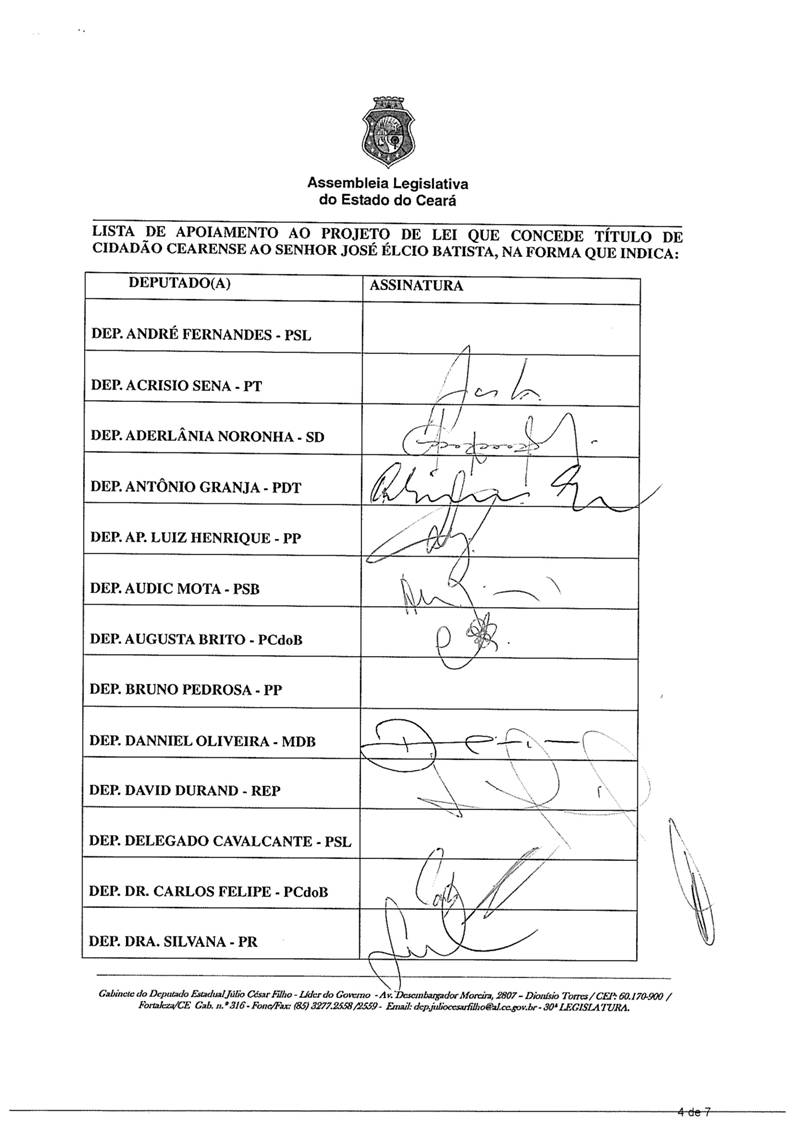 Assembleia Legislativa
do Estado do Ceará
LISTA DE APOIAMENTO AO PROJETO DE LEI QUE CONCEDE TÍTULO DE
CIDADÃO CEARENSE AO SENHOR JOSÉ ÉLCIO BATISTA, NA FORMA QUE INDICA:
DEPUTADO(A) ASSINATURA
DEP. ANDRÉ FERNANDES - PSL
DEP. ACRISIO SENA - PT
DEP. ADERLÂNIA NORONHA - SD
DEP. ANTÔNIO GRANJA - PDT
DEP. AP. LUIZ HENRIQUE - PP
DEP. AUDIC MOTA - PSB
DEP. AUGUSTA BRITO - PCdoB
DEP. BRUNO PEDROSA - PP
DEP. DANNIEL OLIVEIRA - MDB
DEP. DAVID DURAND - REP
DEP. DELEGADO CAVALCANTE - PSL
DEP. DR. CARLOS FELIPE - PCdoB
DEP. DRA. SILVANA - PR
Gabinete do Deputado Estadual Júlio César Filho - Líder do Governo - Av. Desembargador Moreira, 2807 – Dionísio Torres / CEP: 60.170-900 /
Fortaleza/CE Gab. n.º 316 - Fone/Fax: (85) 3277.2558 /2559 - Email: dep.juliocesarfilho@al.ce.gov.br - 30ª LEGISLATURA.
4 de 7